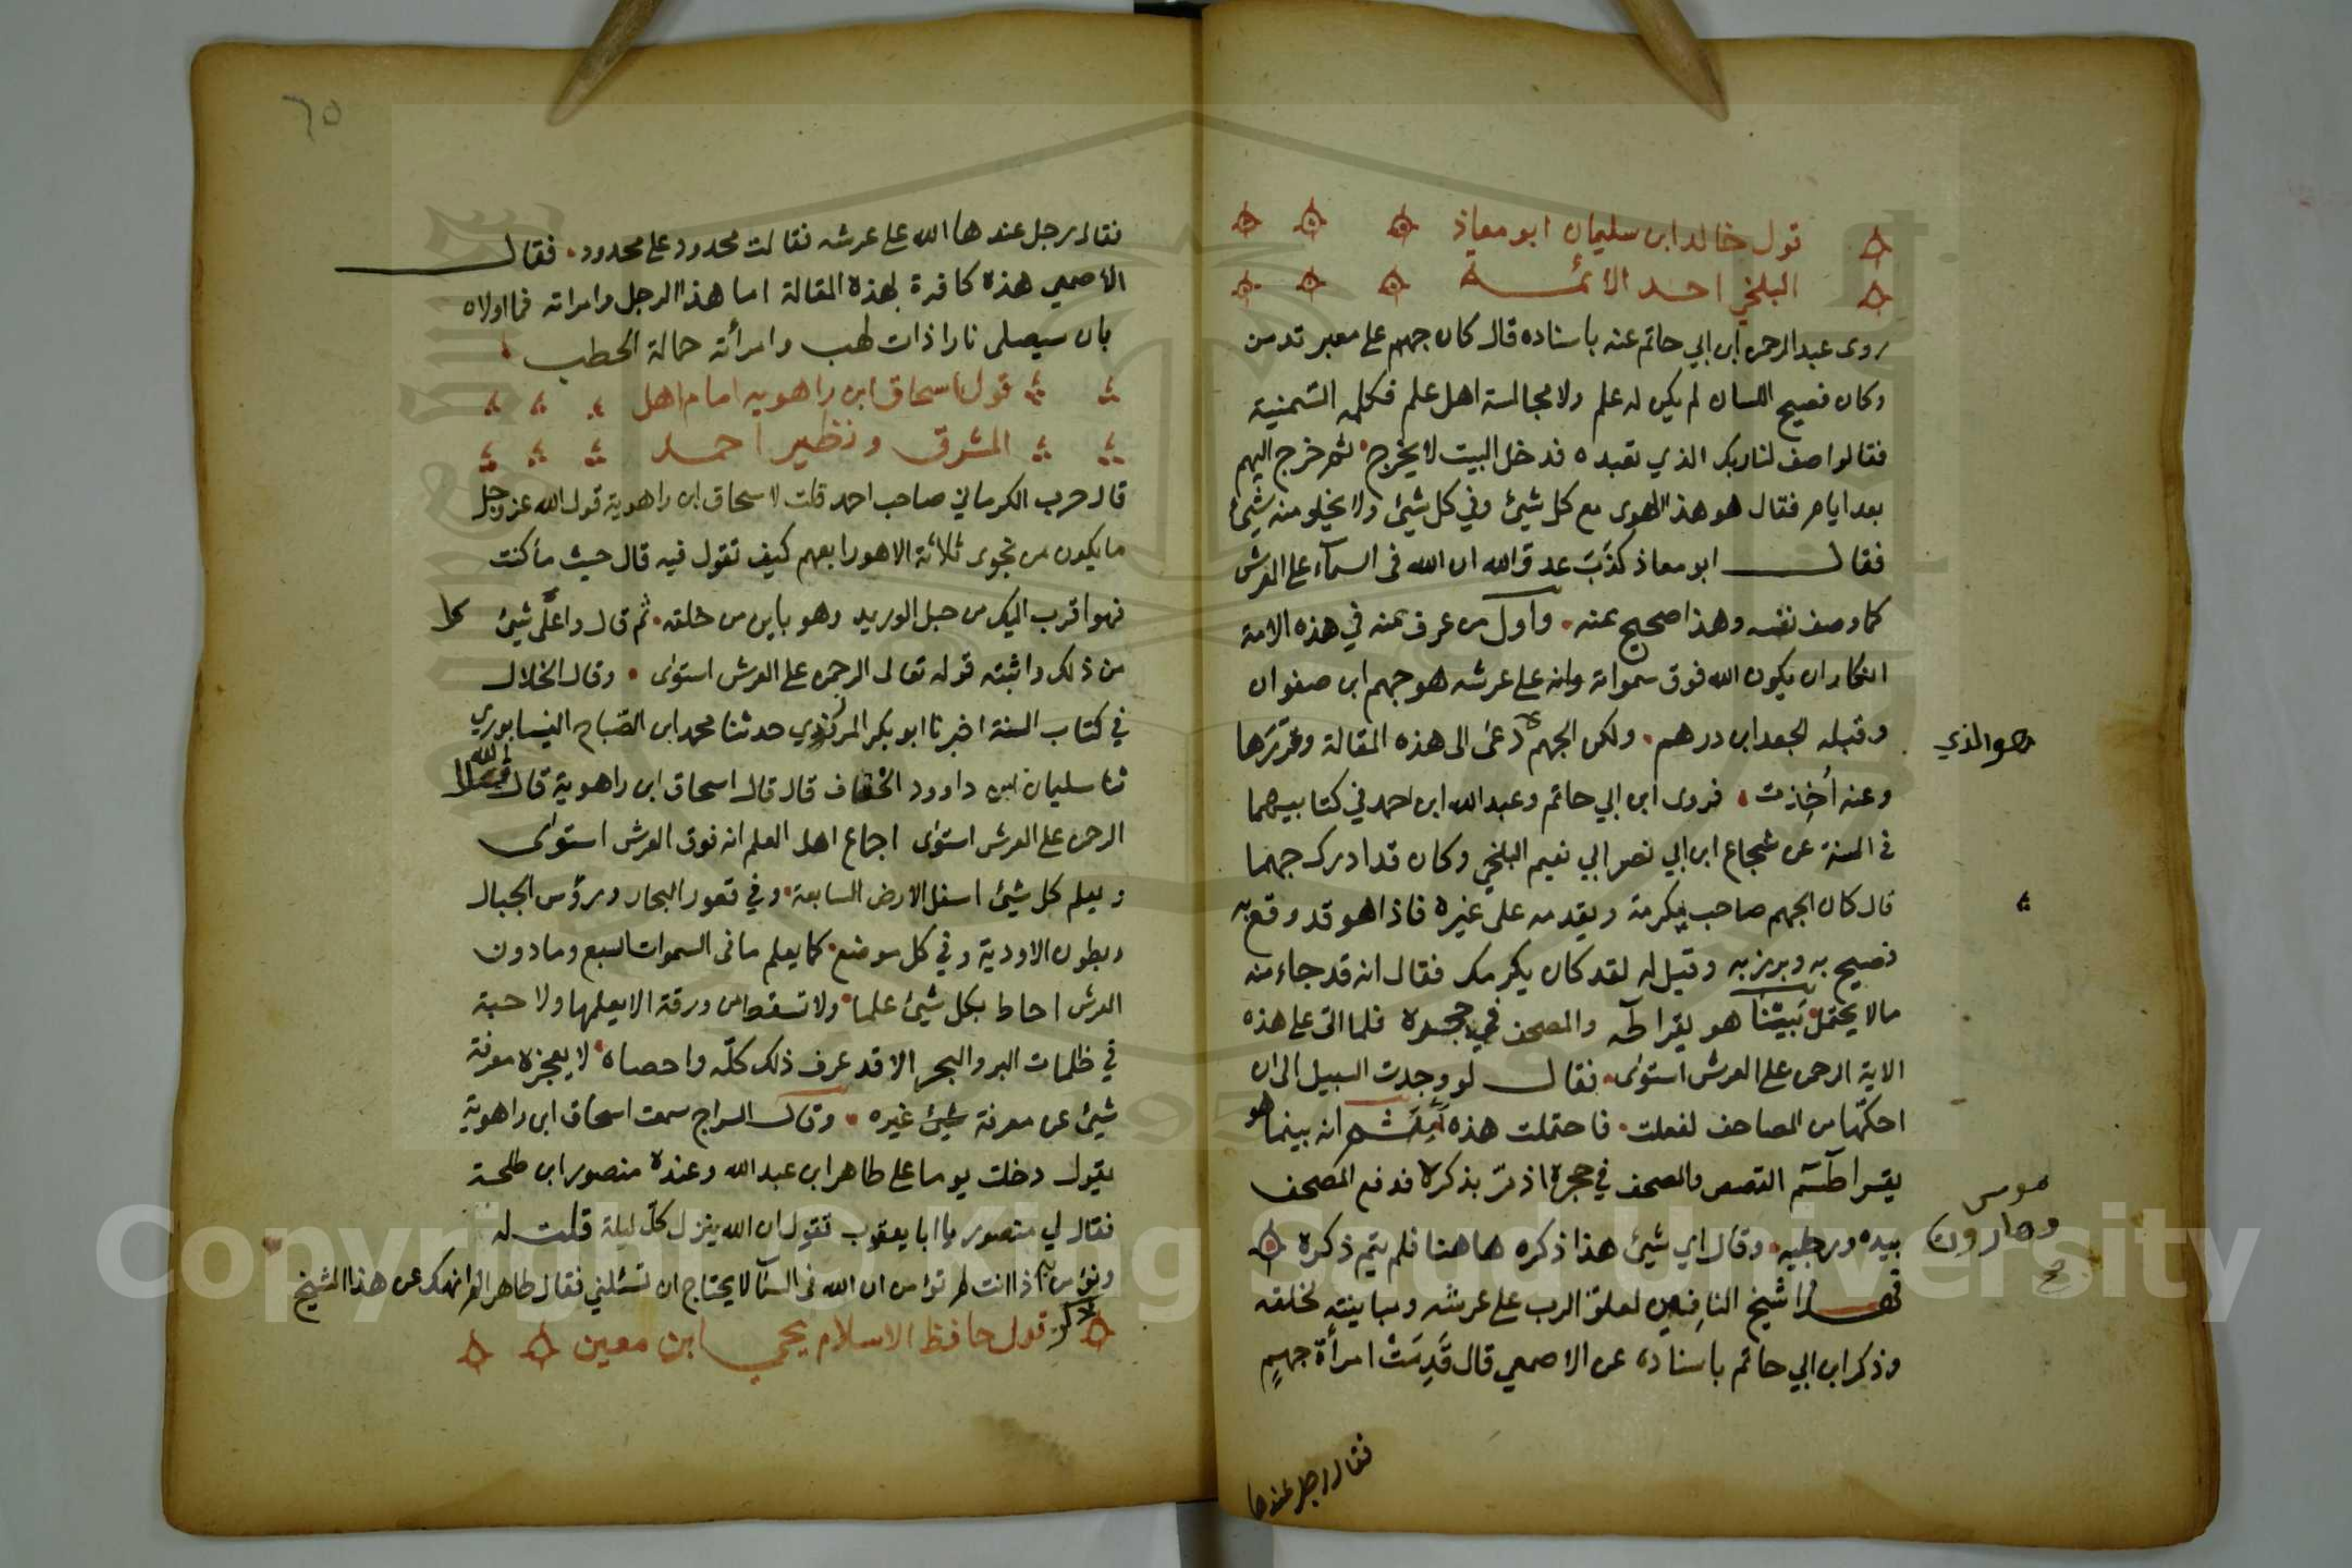 قول خالد ابن سليمان ابو معاذ
البلخي احد الائمة
روى عبد الرحمن ابن ابي حاتم عنه باسناده قال كان جهم على معبر ترمذ
وكان فصيح اللسان لم يكن له علم ولا مجالسة اهل علم فكلم السّمنية
فقالوا صف لنا ربك الذي تعبده فدخل البيت لا يخرج ثم خرج اليهم
بعد ايام فقال هو هذا الهوى مع كل شيئ وفي كل شيئ ولا يخلو منه شيئ
فقال ابو معاذ كذَبَ عدو الله ان الله فى السمآء على العرش
كما وصف نفسه وهذا صحيح عنه وأول من عرف عنه في هذه الامة
انكار ان يكون الله فوق سمواته وانه على عرشه هو جهم ابن صفوان
وقبله الجعد ابن درهم ولكن الجهم دعى الى هذه المقالة وقرّرَها
هو الذي
وعنه أُخِذت فروى ابن ابي حاتم وعبد الله ابن احمد في كتابيهما
فى السنة عن شجاع ابن ابي نصر ابي نعيم البلخي وكان قد ادرك جهما
قال كان الجهم صاحب يكرمه ويقدمه على غيره فاذا هو قد وقع به
فصيح به وبربر به وقيل له لقد كان يكرمك فقال انه قد جاء منه
مالا يحتمل بَيْنَا هو يقرا طه والمصحف في حجره فلما اتى على هذه
الاية الرحمن على العرش استوى فقال لو وجدت السبيل الى ان
احكّها من المصاحف لفعلت فاحتملت هذه ثم انه بينما هو
يقرا طسم القصص والمصحف في حجره اذ مرّ بذكر فدفع المصحف
موسى
وهارون
صح
بيده ورجليه وقال اي شيئ هذا ذكره هاهنا فلم يتم ذكره
فهذا شيخ النافين لعلوّ الرب على عرشه ومباينته لخلقه
وذكر ابن ابي حاتم باسناده عن الاصمعي قال قَدِمَتْ امرأة جهمٍ
فقال رجل عندها
٦٥
فقال رجل عندها الله على عرشه فقالت محدود على محدود فقال
الاصمعي هذه كافرة بهذه المقالة اما هذا الرجل وامراته فما اولاه
بان سيصلى نارا ذات لهب وامرأته حمالة الحطب
قول اسحاق ابن راهويه امام اهل
المشرق ونظير احمد
قال حرب الكرماني صاحب احمد قلت لاسحاق ابن راهوية قول الله عز وجل
ما يكون من نجوى ثلاثة الا هو رابعهم كيف تقول فيه قال حيث ما كنت
فهو اقرب اليك من حبل الوريد وهو باين من خلقه ثم قال واعلى شيئ
من ذلك واثبته قوله تعالى الرحمن على العرش استوى وقال الخلال
في كتاب السنة اخبرنا ابو بكر المروذي حدثنا محمد ابن الصّباح النيسابوري
ثنا سليمان ابن داوود الخفاف قال قال اسحاق ابن راهوية قال الله
الرحمن على العرش استوى اجماع اهل العلم انه فوق العرش استوى
ويعلم كل شيئ اسفل الارض السابعة وفي قعور البحار ورؤس الجبال
وبطون الاودية وفي كل موضع كما يعلم ما فى السموات السبع وما دون
العرش احاط بكل شيئ علما ولا تسقط من ورقة الا يعلمها ولا حبة
في ظلمات البر والبحر الا قد عرف ذلك كلّه واحصاه لا يعجزه معرفة
شيئ عن معرفة شيئ غيره وقال السراج سمعت اسحاق ابن راهوية
يقول دخلت يوما على طاهر ابن عبد الله وعنده منصور ابن طلحة
فقال لي منصور يا ابا يعقوب تقول ان الله ينزل كلّ ليلة قلت له
ونؤمن به اذا انت لم تؤمن ان الله فى السمآ لا يحتاج ان تسئلني فقال طاهر الم انهك عن هذا الشيخ
قول حافظ الاسلام يحيى ابن معين
Copyright © King Saud University